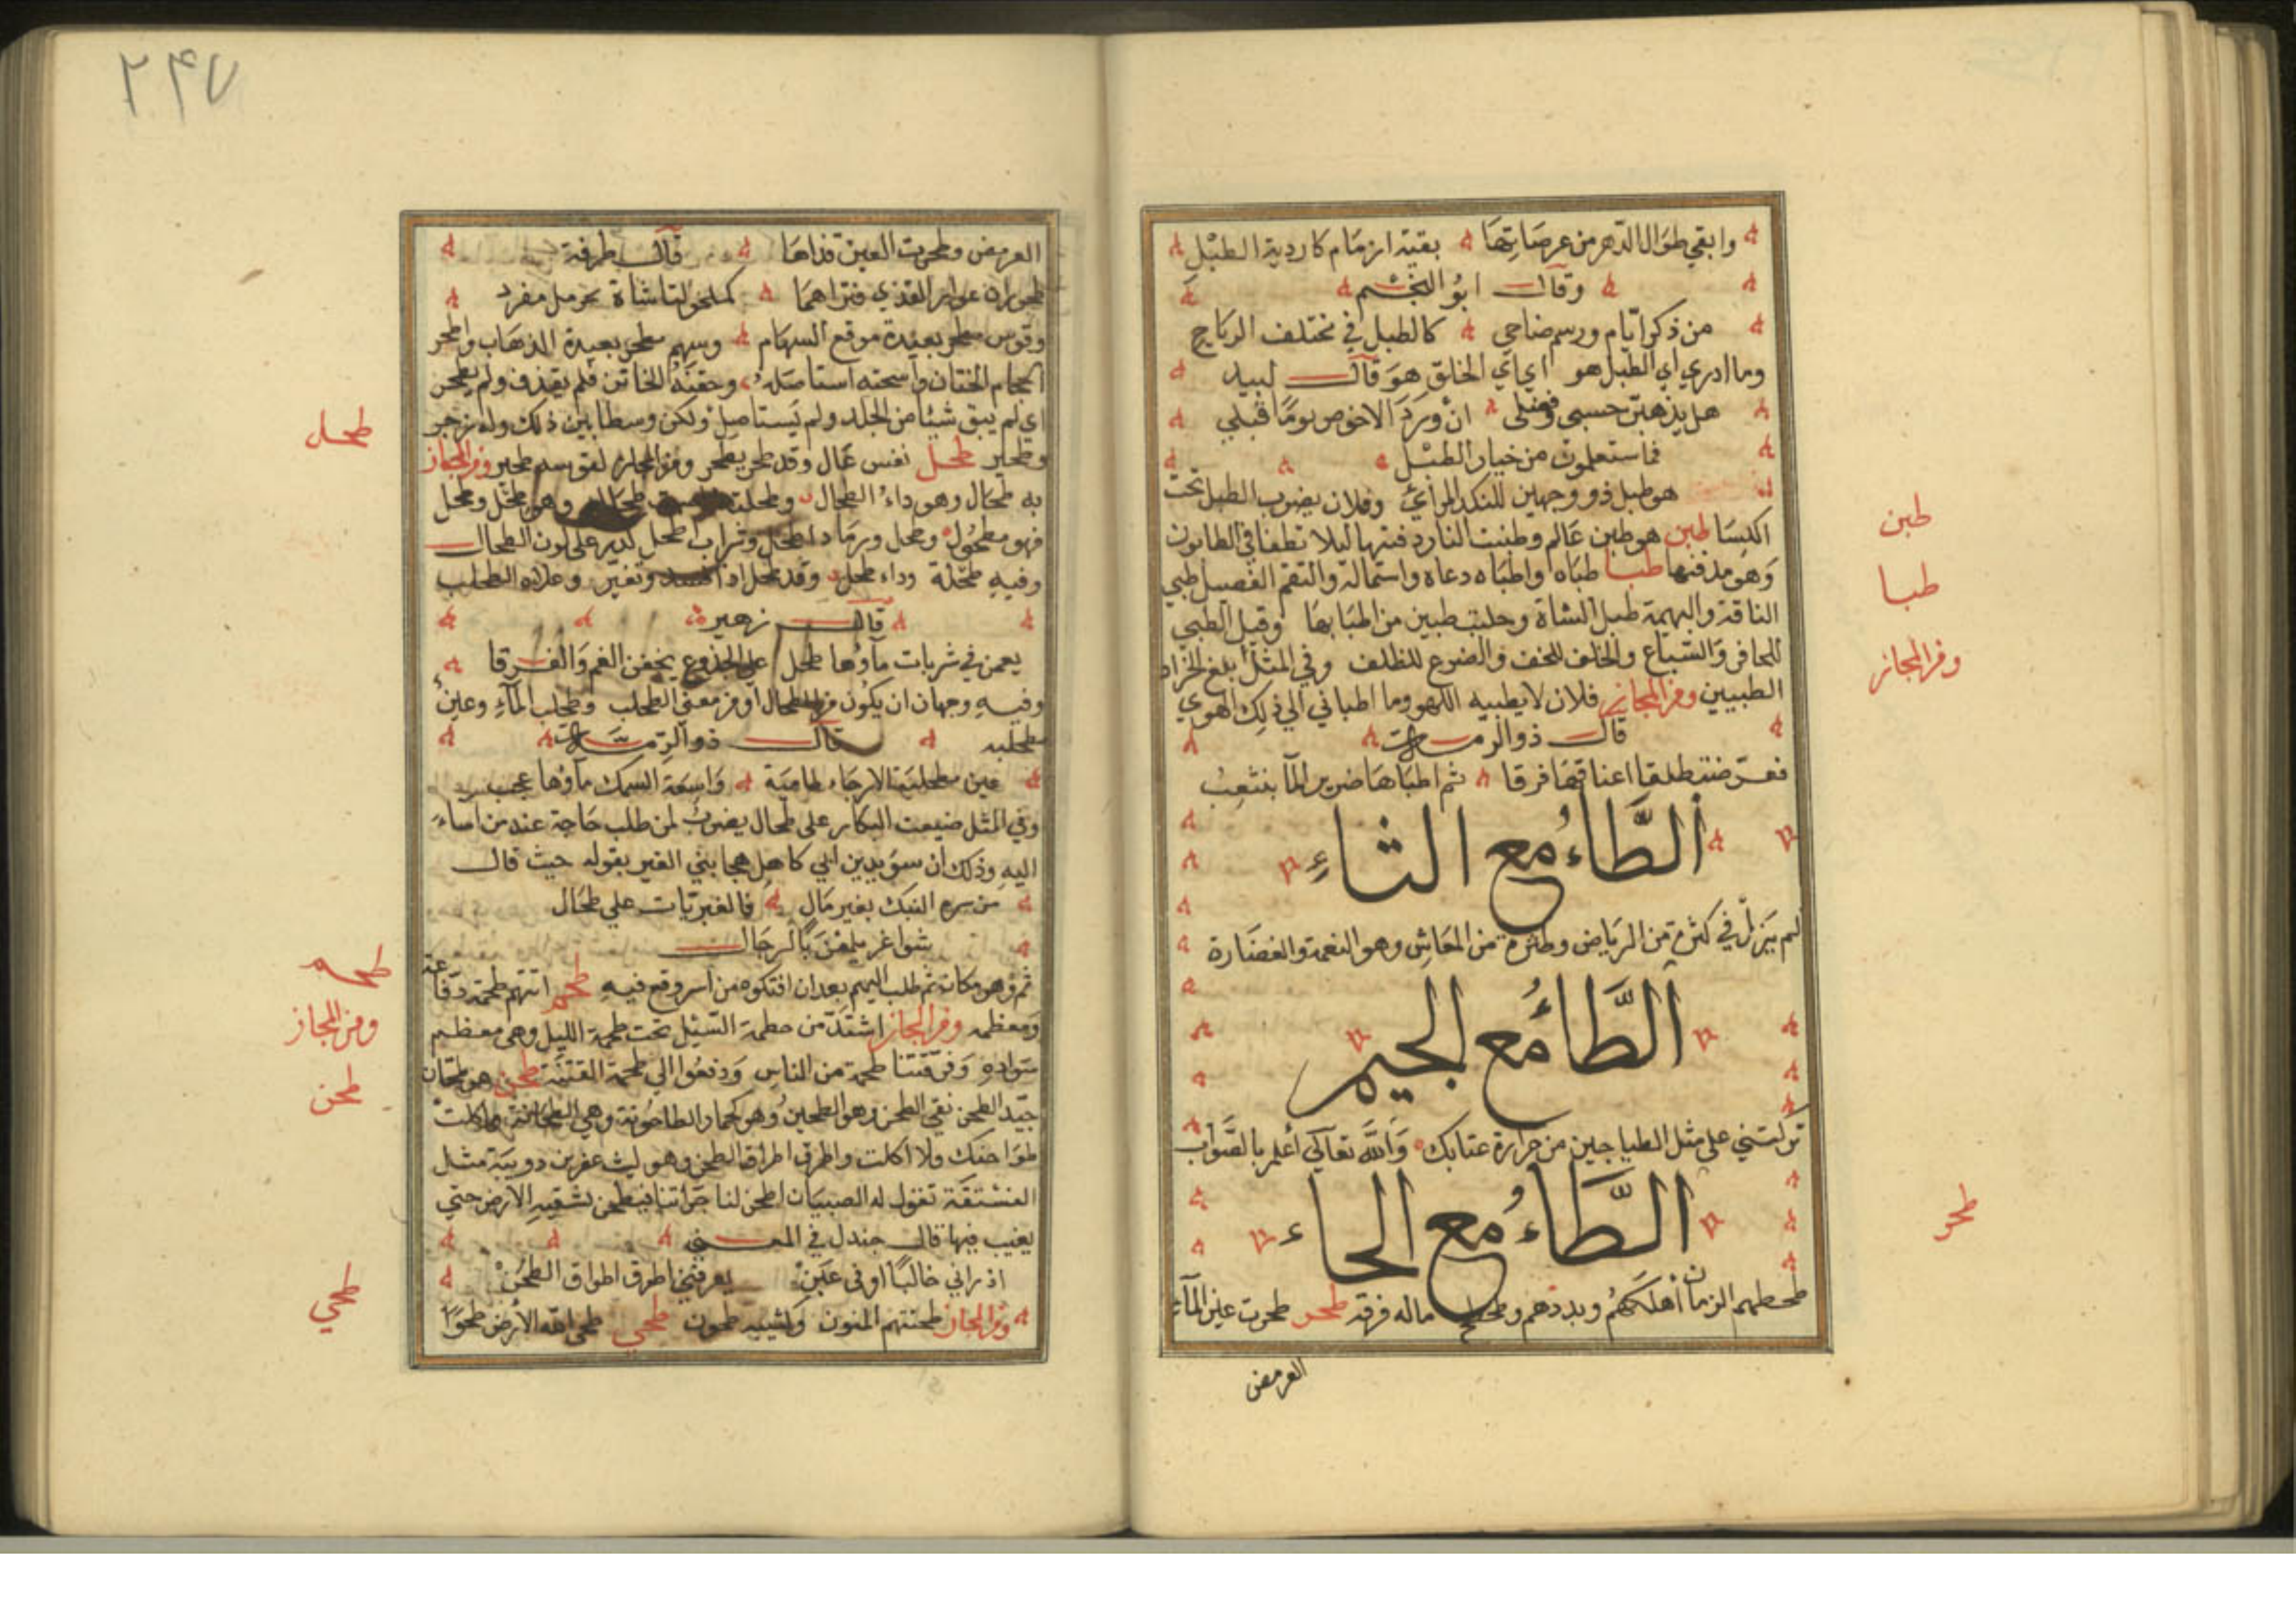 وابقي طوال الدهر من عرصاتها بقية ارمام كاردية الطبل
وقال ابو النجم
من ذكر ايام ورسم ضاحي كالطبل في مختلف الرياح
وما ادري اي الطبل هو اي اي الخلق هو قال لبيد
هل يذهبن حسبي وفضلي ان ورد الاحوص يوما قبلي
ستعلمون من خيار الطبل
هو طبل ذو وجهين للنكد المرائي وفلان يضرب الطبل تحت
اكسا طبن هو طبن عالم وطبنت النار دفنتها ليلا تطفا في الطابون
وهو مدفنها طبا طباه واطباه دعاه واستماله والتقم الفصيل طبي
الناقة والبهيمة طبي الشاة وحلبت طبيين من اطبابها وقيل الطبي
للحافر والسباع والخلف للخف والضرع للظلف وفي المثل ابلغ الحزام
الطبيين ومن المجاز فلان لا يطبيه اللهو وما اطباني الي ذلك الهوي
قال ذو الرمة
فعرضت طلقا اعناقها فرقا ثم اطباها خرير الما ينثعب
الطاء مع الثاء
لم يزل في كثرة من الرياض وطثرة من المعاش وهو النعمة والغضارة
الطاء مع الجيم
تركتني علي مثل الطياجين من حرارة عتابك والله تعالي اعلم بالصواب
الطاء مع الحاء
طحطهم الزمان اهلكهم وبددهم وطحطح ماله فرقه طحر طحرت عين الماء
العرمض
طبن
طبا
ومن المجاز
طحر
٢٤٧
العرمض وطحرت العين قذاها قال طرفة
طحوران عوار القذي فتراهما كمكحولتا شاة بحومل مفرد
وقوس مطحر بعيدة موقع السهام وسهم مطحر بعيدة الذهاب واطحر
الحجام الختان واسحته استاصله وختنه الخاتن فلم يقذف ولم يطحر
اي لم يبق شيئا من الجلد ولم يستاصل ولكن وسطا بين ذلك وله زحير
وطحير طحل نفس عال وقد طحر يطحر ومن المجاز لقوسه طحير ومن المجاز
به طحال وهو داء الطحال وطحلته وهو طحل وطحل
فهو مطحول وطحل ورماد اطحل وتراب اطحل كدر علي لون الطحال
وفيه طحلة وداء طحل وقد طحل اذا فسد وتغير وعلاه الطحلب
قال زهير
يعمن في شربات ماؤها طحل علي الجذوع يخفن الغم والغرقا
وفيه وجهان ان يكون من الطحال او من معني الطحلب وطحلب الماء وعين
مطحلبه قال ذو الرمة
عين مطحلبة الارجاء طامية واسعة السمك ماؤها عجب
وفي المثل ضيعت البكار علي طحال يضرب لمن طلب حاجة عند من اساء
اليه وذلك ان سويد بن ابي كاهل هجا بني الغبر بقوله حيث قال
من سره النيك بغير مال فالغبريات علي طحال
شواغر يلمعن بالرجال
ثم وهو مكانة ثم طلب اليهم بعد ان افتكوه من اسر وقع فيه طحم اتتهم طحمة دفاعة
ومعظمه ومن المجاز اشتد من حطمة السيل تحت طحمة الليل وهي معظم
سواده وفرقتنا طحمة من الناس ودفعوا الي طحمة الفتنة طحن هو طحان
جيد الطحن نقي الطحن وهو الطحين وهو كحمار الطاحونة وهي الطحانة وما كلت
طواحنك ولا اكلت واطرق اطراق الطحن وهو ليث عفرين دويبة مثل
الفستقة تقول له الصبيان اطحن لنا جرابنا فيطحن بشقيه الارض حتي
يغيب فيها قال جندل في المعني
اذ راني خاليا او في عين يعرفني اطرق اطراق الطحن
ومن المجاز طحنتهم المنون وكتيبه طحون طحي طحي الله الارض طحوا
طحل
طحم
ومن المجاز
طحن
طحي